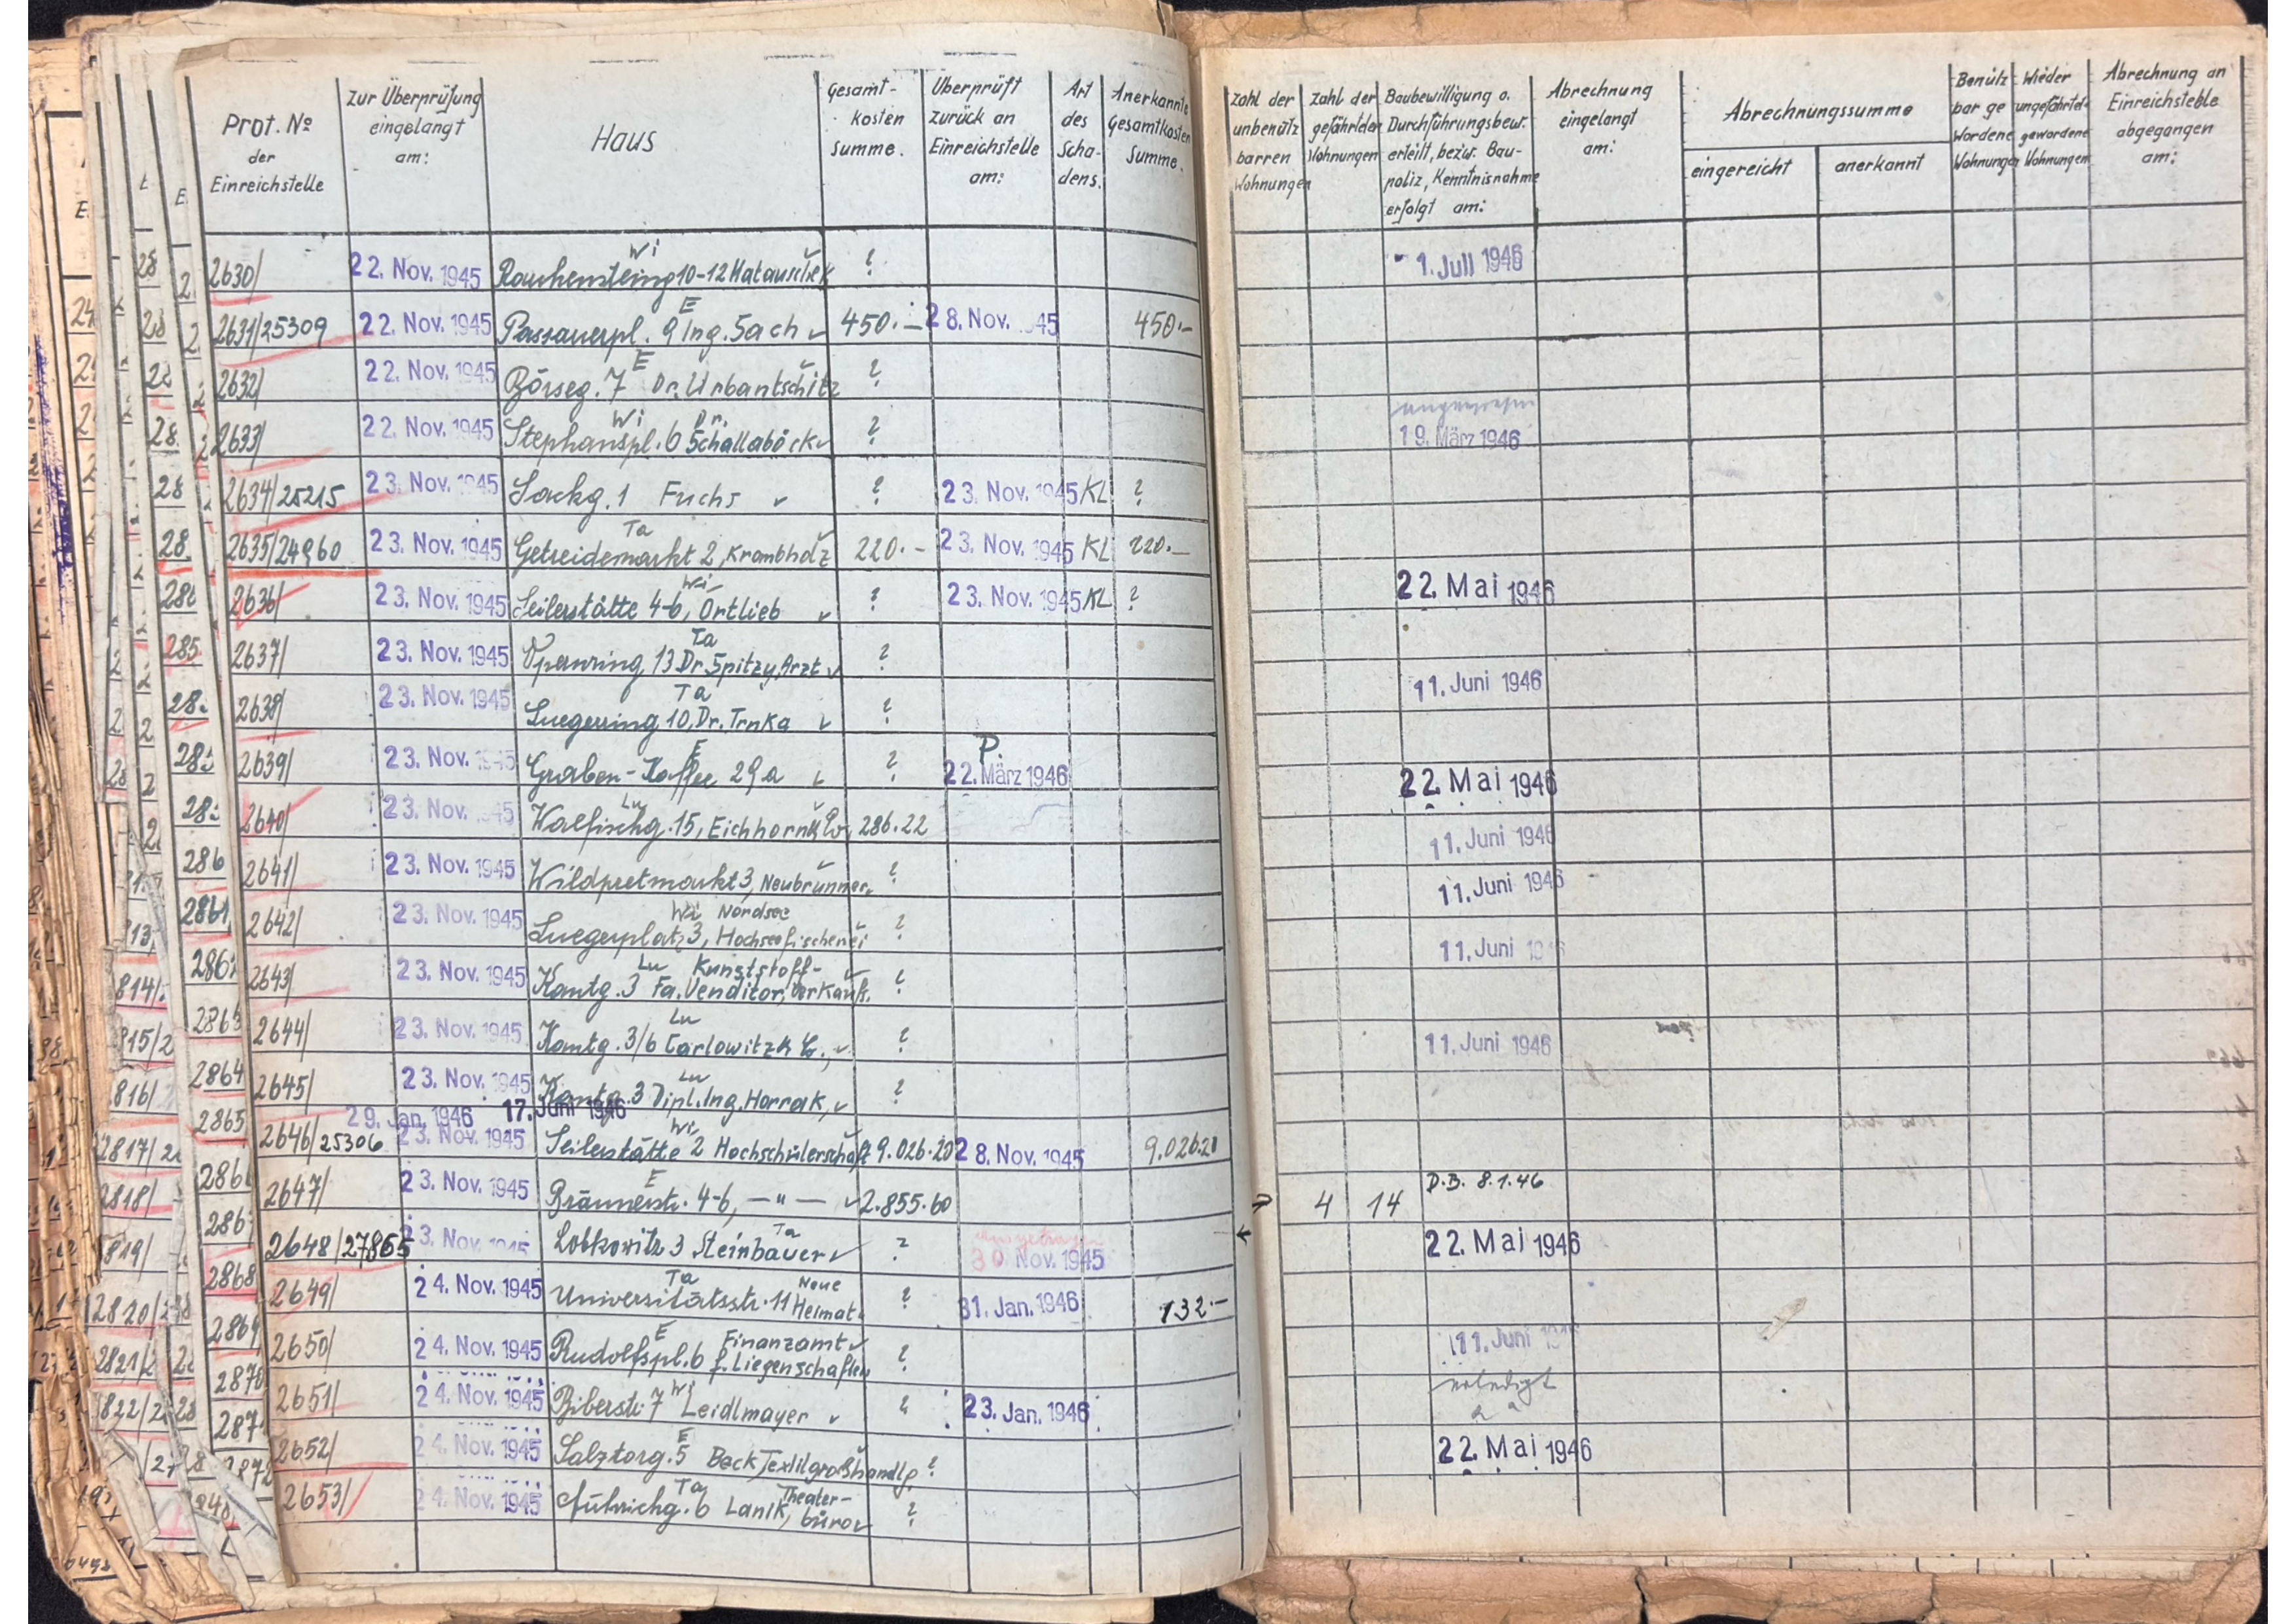 Prot. № der Einreichstelle | Zur Überprüfung eingelangt am: | Haus | Gesamt-kosten summe. | Überprüft zurück an Einreichstelle am: | Art des Scha-dens. | Anerkannte Gesamtkosten Summe. | Zahl der unbenütz barren Wohnungen | Zahl der gefährdeten Wohnungen | Baubewilligung o. Durchführungsbew. erteilt, bezw. Bau-poliz, Kenntnisnahme erfolgt am: | Abrechnung eingelangt am: | Abrechnungssumme eingereicht | anerkannt | Benütz bar ge wordene Wohnungen | Wieder ungefährdet gewordene Wohnungen | Abrechnung an Einreichstelle abgegangen am:
2630/ 22. Nov. 1945 Wi Rauhensteing 10-12 Matauschek ? - 1. Juli 1946
2631/25309 22. Nov. 1945 E Passauerpl. 9 Ing. Sach 450.- 28. Nov. 1945 450.-
2632/ 22. Nov. 1945 E Börseg. 7 Dr. Urbantschitz ?
2633/ 22. Nov. 1945 Wi Stephanspl. 6 Dr. Schallaböck ? 19. März 1946
2634/25215 23. Nov. 1945 Sackg. 1 Fuchs ? 23. Nov. 1945 KL ?
2635/24960 23. Nov. 1945 Ta Getreidemarkt 2, Krombholz 220.- 23. Nov. 1945 KL 220.-
2636/ 23. Nov. 1945 Wi Seilerstätte 4-6, Ortlieb ? 23. Nov. 1945 KL ? 22. Mai 1946
2637/ 23. Nov. 1945 Ta Opernring 13 Dr. Spitzy, Arzt ?
2638/ 23. Nov. 1945 Ta Luegerring 10, Dr. Trnka ? 11. Juni 1946
2639/ 23. Nov. 1945 E Graben-Kaffee 29a ? P. 22. März 1946 22. Mai 1946
2640/ 23. Nov. 1945 Lu Walfischg. 15, Eichhorn & Co, 286.22 11. Juni 1946
2641/ 23. Nov. 1945 Wildpretmarkt 3, Neubrunner ? 11. Juni 1946
2642/ 23. Nov. 1945 Wi Luegerplatz 3, Nordsee Hochseefischerei ? 11. Juni 1946
2643/ 23. Nov. 1945 Lu Kantg. 3 Fa. Venditor, Kunststoff-Verkaufs. ?
2644/ 23. Nov. 1945 Lu Kantg. 3/6 Carlowitz & Co., ? 11. Juni 1946
2645/ 23. Nov. 1945 Lu Kantg. 3 Dipl. Ing. Horrak, ?
29. Jan. 1946 17. Juni 1946
2646/25306 23. Nov. 1945 Wi Seilerstätte 2 Hochschülerschaft 9.026.20 28. Nov. 1945 9.026.20
2647/ 23. Nov. 1945 E Bräunerstr. 4-6, —"— 2.855.60 4 14 D.B. 8.1.46
2648/27865 23. Nov. 1945 Ta Lobkowitz 3 Steinbauer ? 30 Nov. 1945 22. Mai 1946
2649/ 24. Nov. 1945 Ta Universitätsstr. 11 Neue Heimat ? 31. Jan. 1946 132.-
2650/ 24. Nov. 1945 E Rudolfspl. 6 Finanzamt f. Liegenschaften ? 11. Juni 1946
2651/ 24. Nov. 1945 Wi Biberstr. 7 Leidlmayer ? 23. Jan. 1946 erledigt
2652/ 24. Nov. 1945 E Salztorg. 5 Beck Textilgroßhandlg. ? 22. Mai 1946
2653/ 24. Nov. 1945 Ta Führichg. 6 Lanik, Theater-büro ?